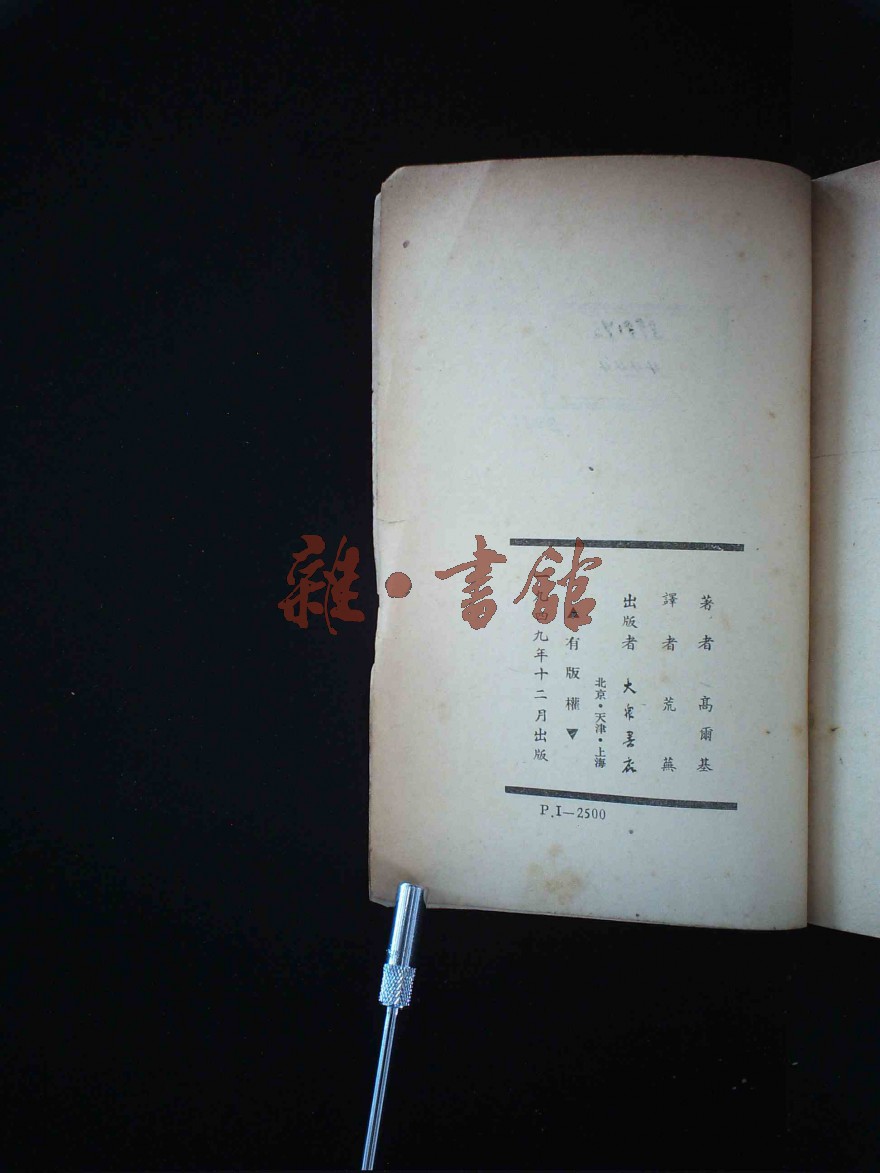 著者 高爾基
譯者 荒蕪
出版者 大衆書店
北京・天津・上海
▲有版權▼
九年十二月出版
P.I—2500
雜・書館